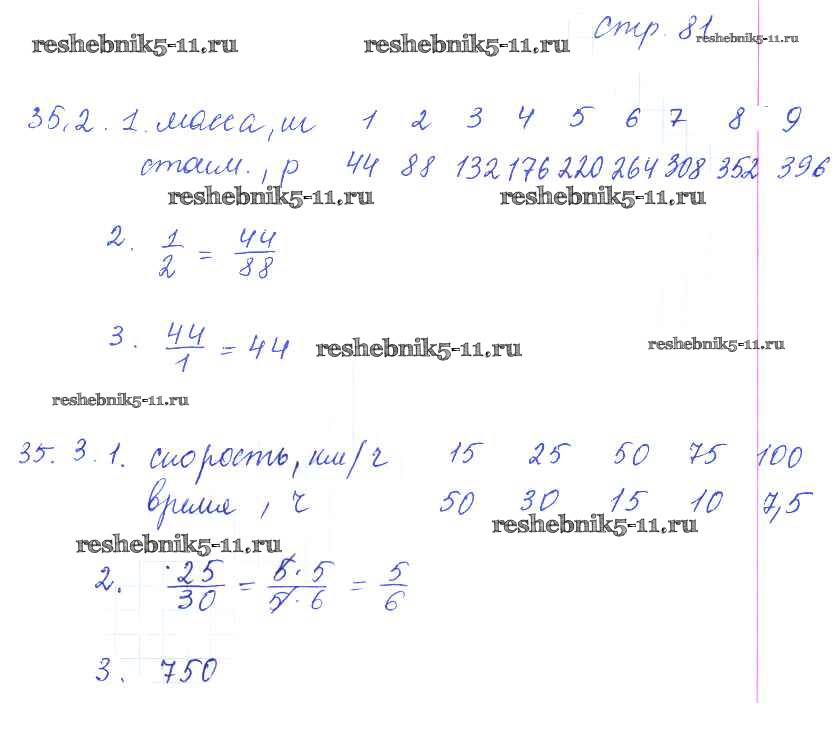 стр. 81
reshebnik5-11.ru reshebnik5-11.ru reshebnik5-11.ru
35.2. 1. масса, ш 1 2 3 4 5 6 7 8 9
стоим., р 44 88 132 176 220 264 308 352 396
reshebnik5-11.ru reshebnik5-11.ru
2. 1/2 = 44/88
3. 44/1 = 44 reshebnik5-11.ru reshebnik5-11.ru
reshebnik5-11.ru
35.3.1. скорость, км/ч 15 25 50 75 100
время, ч 50 30 15 10 7,5
reshebnik5-11.ru
reshebnik5-11.ru
2. 25/30 = 5·5/5·6 = 5/6
3. 750